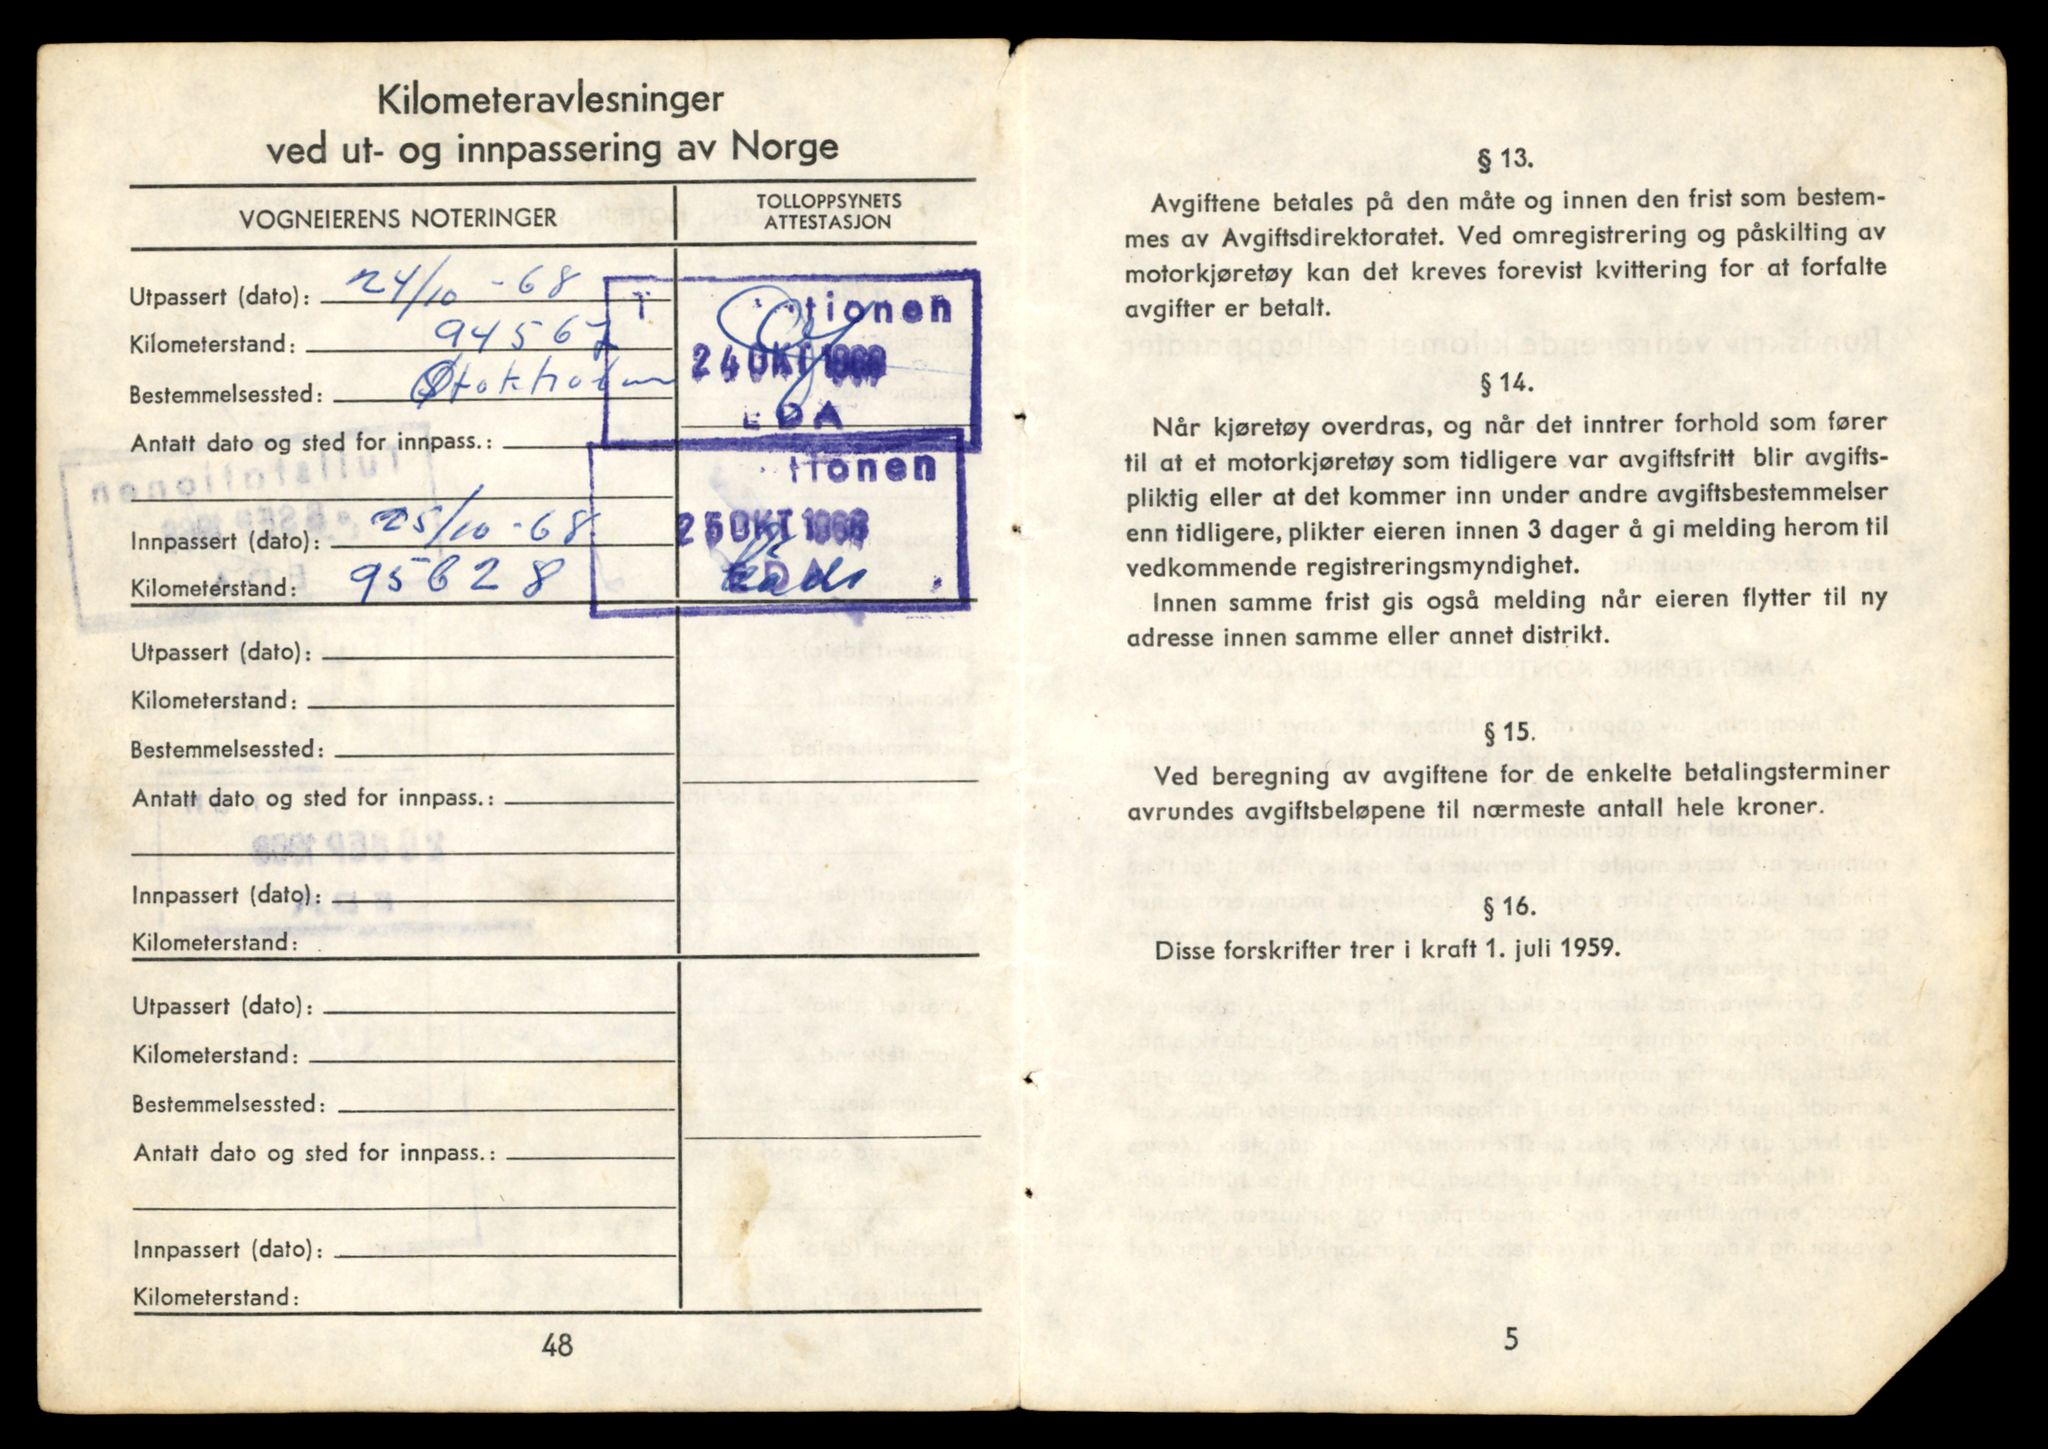 Kilometeravlesninger
ved ut- og innpassering av Norge
VOGNEIERENS NOTERINGER
TOLLOPPSYNETS
ATTESTASJON
Utpassert (dato): 24/10 - 68
Kilometerstand: 94567
Bestemmelsessted: Stokholm
Antatt dato og sted for innpass.:
T tionen
24 OKT 1968
EDA
Innpassert (dato): 25/10 - 68
Kilometerstand: 95628
tionen
25 OKT 1968
EDA
Utpassert (dato):
Kilometerstand:
Bestemmelsessted:
Antatt dato og sted for innpass.:
Innpassert (dato):
Kilometerstand:
Utpassert (dato):
Kilometerstand:
Bestemmelsessted:
Antatt dato og sted for innpass.:
Innpassert (dato):
Kilometerstand:
48
§ 13.
Avgiftene betales på den måte og innen den frist som bestem-
mes av Avgiftsdirektoratet. Ved omregistrering og påskilting av
motorkjøretøy kan det kreves forevist kvittering for at forfalte
avgifter er betalt.
§ 14.
Når kjøretøy overdras, og når det inntrer forhold som fører
til at et motorkjøretøy som tidligere var avgiftsfritt blir avgifts-
pliktig eller at det kommer inn under andre avgiftsbestemmelser
enn tidligere, plikter eieren innen 3 dager å gi melding herom til
vedkommende registreringsmyndighet.
Innen samme frist gis også melding når eieren flytter til ny
adresse innen samme eller annet distrikt.
§ 15.
Ved beregning av avgiftene for de enkelte betalingsterminer
avrundes avgiftsbeløpene til nærmeste antall hele kroner.
§ 16.
Disse forskrifter trer i kraft 1. juli 1959.
5